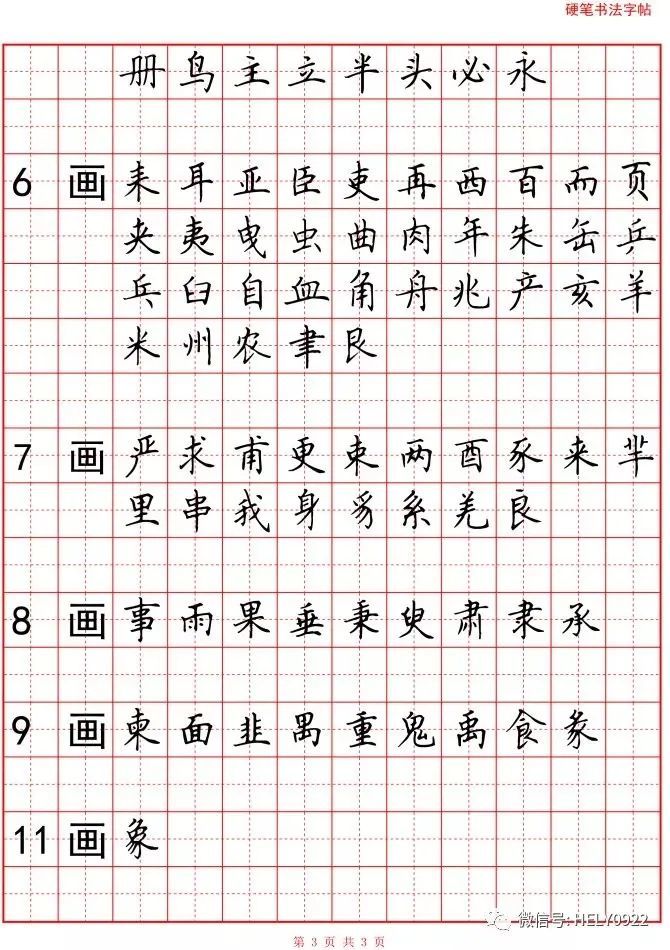 硬笔书法字帖
册鸟主立半头必永
6 画 耒耳亚臣吏再西百而页
夹夷曳虫曲肉年朱缶乒
兵臼自血角舟兆产亥羊
米州农聿艮
7 画 严求甫更束两酉豕来芈
里串我身豸系羌良
8 画 事雨果垂秉臾肃隶承
9 画 柬面韭禺重鬼禹食彖
11 画 象
微信号: HELY0922
第 3 页 共 3 页